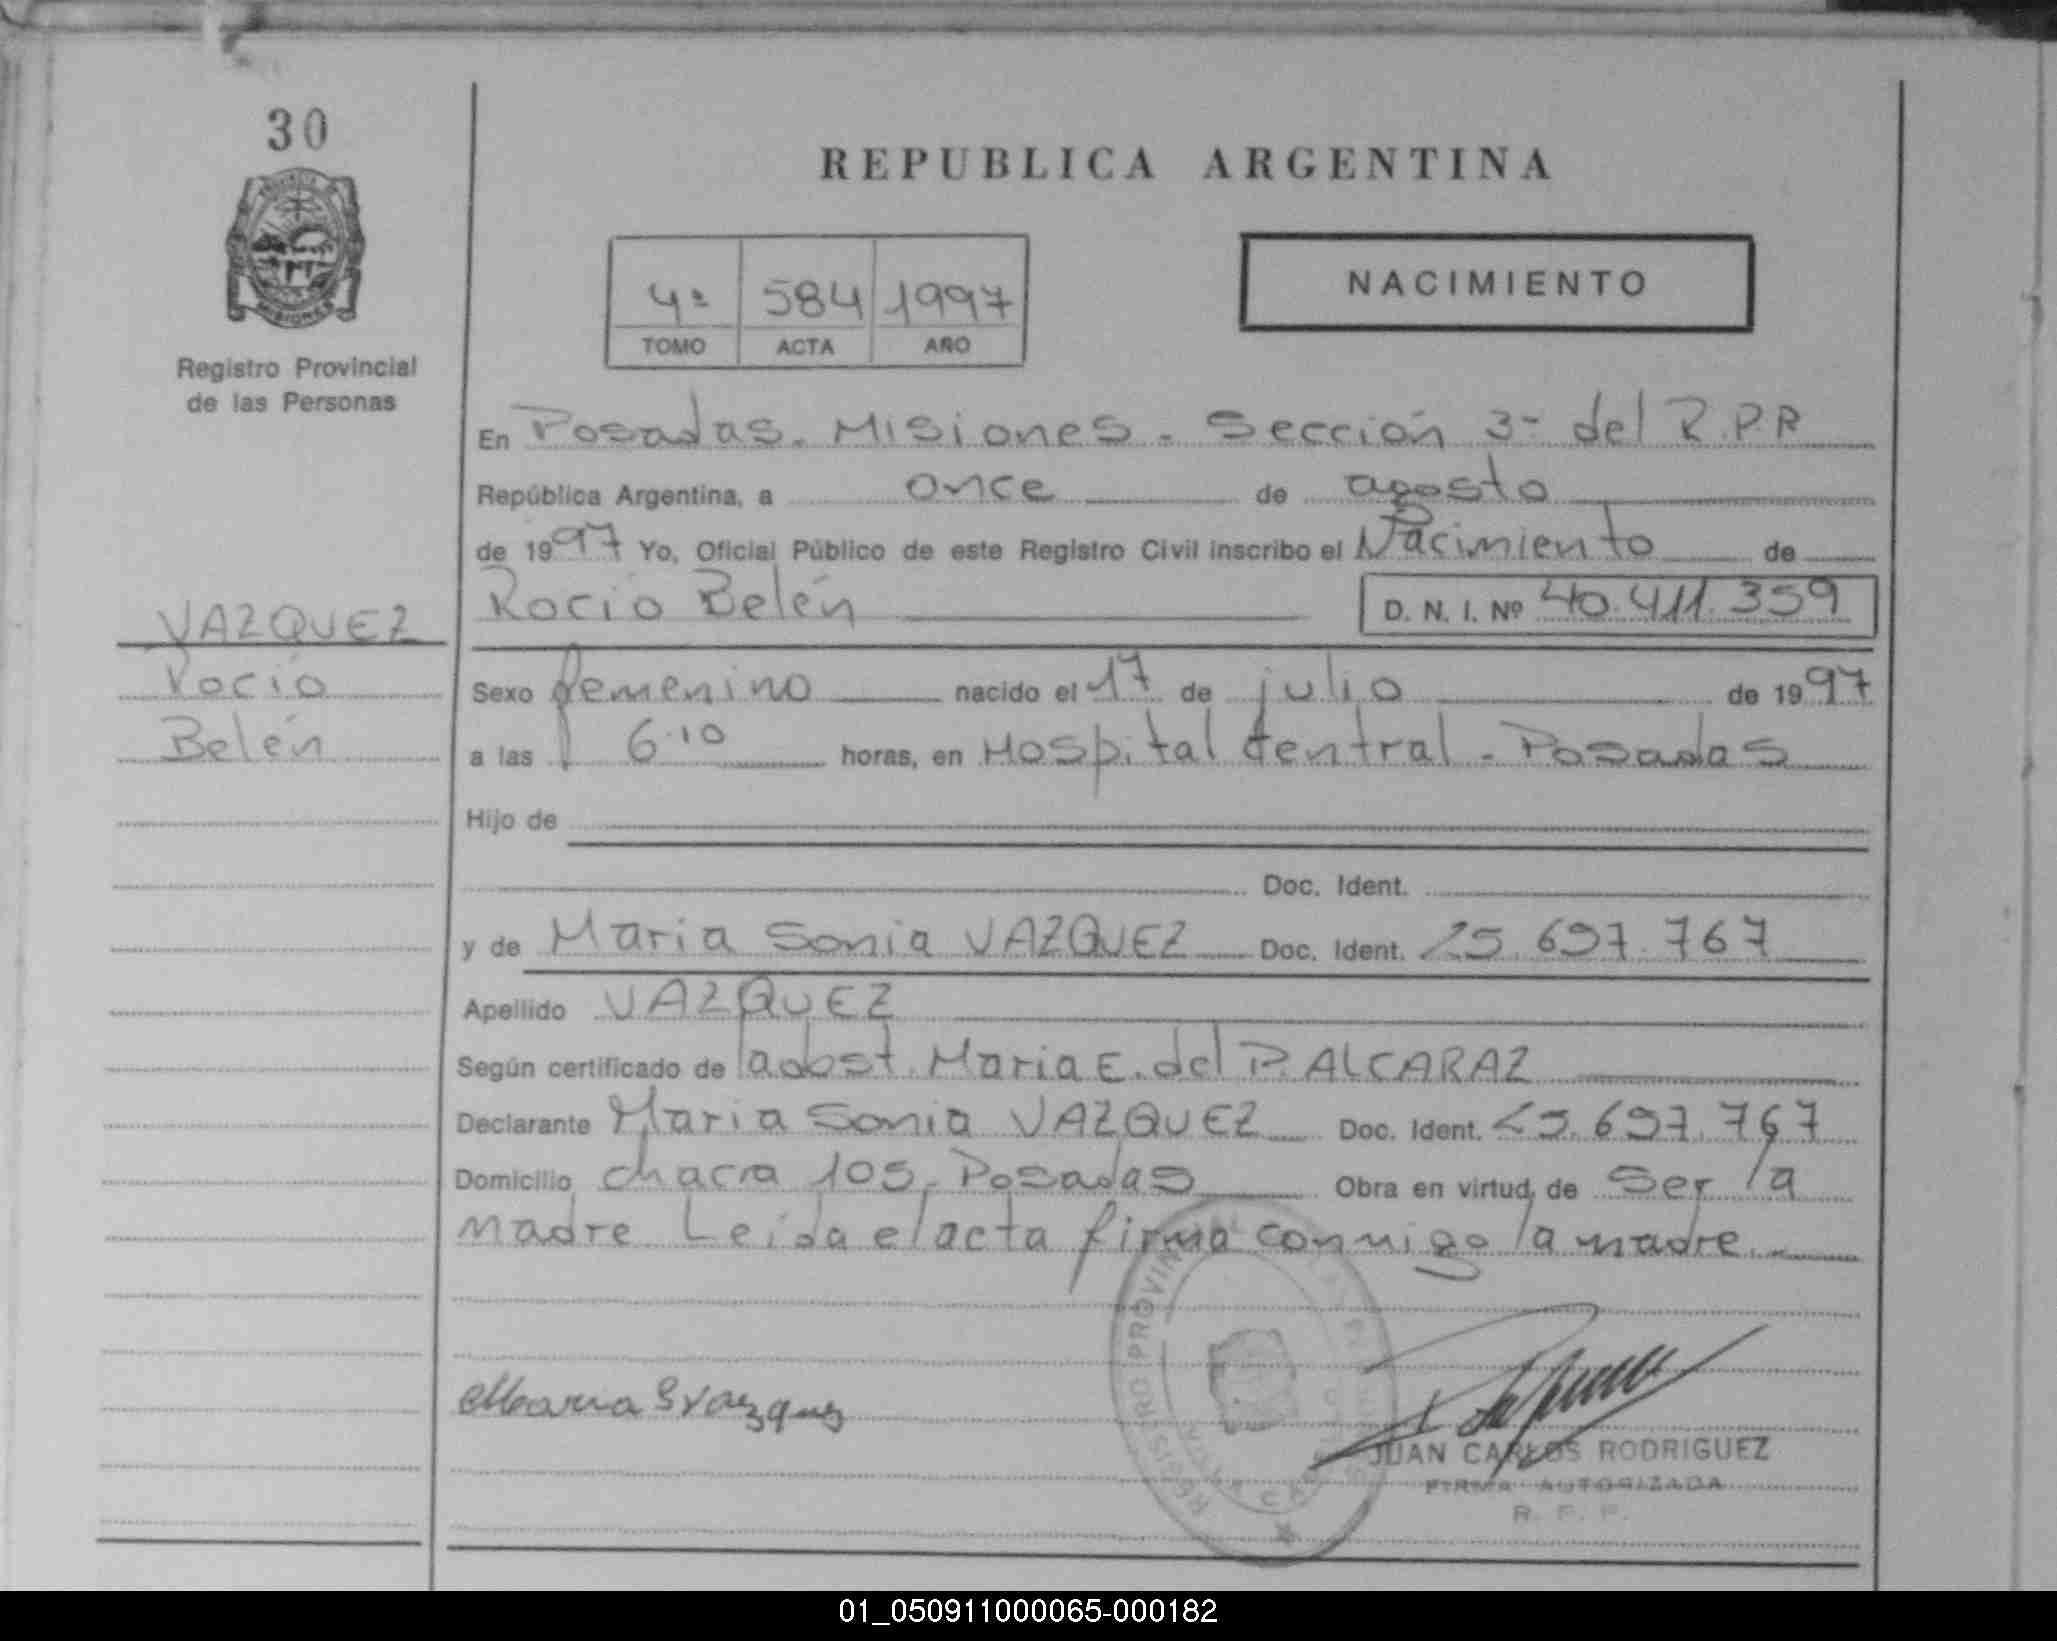 30
REPUBLICA ARGENTINA
NACIMIENTO
4ª 584 1997
TOMO ACTA AÑO
Registro Provincial
de las Personas
En Posadas. Misiones. Sección 3ª del R.P.R
República Argentina, a once de agosto
de 1997 Yo, Oficial Público de este Registro Civil inscribo el Nacimiento de
Rocio Belén D. N. I. Nº 40.411.359
VAZQUEZ
Rocio
Belén
Sexo femenino nacido el 17 de julio de 1997
a las 6.10 horas, en Hospital Central - Posadas
Hijo de
Doc. Ident.
y de Maria Sonia VAZQUEZ Doc. Ident. 25.697.767
Apellido VAZQUEZ
Según certificado de la obst. Maria E. del P. ALCARAZ
Declarante Maria Sonia VAZQUEZ Doc. Ident. 25.697.767
Domicilio chacra 105, Posadas Obra en virtud de ser la
madre Leida el acta firma conmigo la madre.
Maria S Vazquez
REGISTRO PROVINCIAL
JUAN CARLOS RODRIGUEZ
FIRMA AUTORIZADA
R. P. P.
01_050911000065-000182